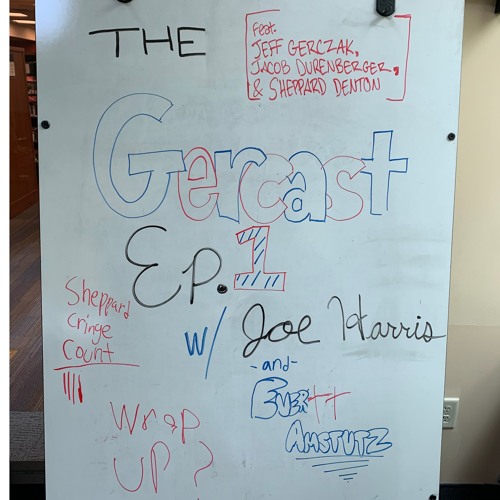 THE
Feat.
JEFF GERCZAK,
JACOB DURENBERGER,
& SHEPPARD DENTON
Gercast
EP. 1
w/ Joe Harris
-and-
EVERTT
AMSTUTZ
Sheppard
Cringe
Count
Wrap
UP?